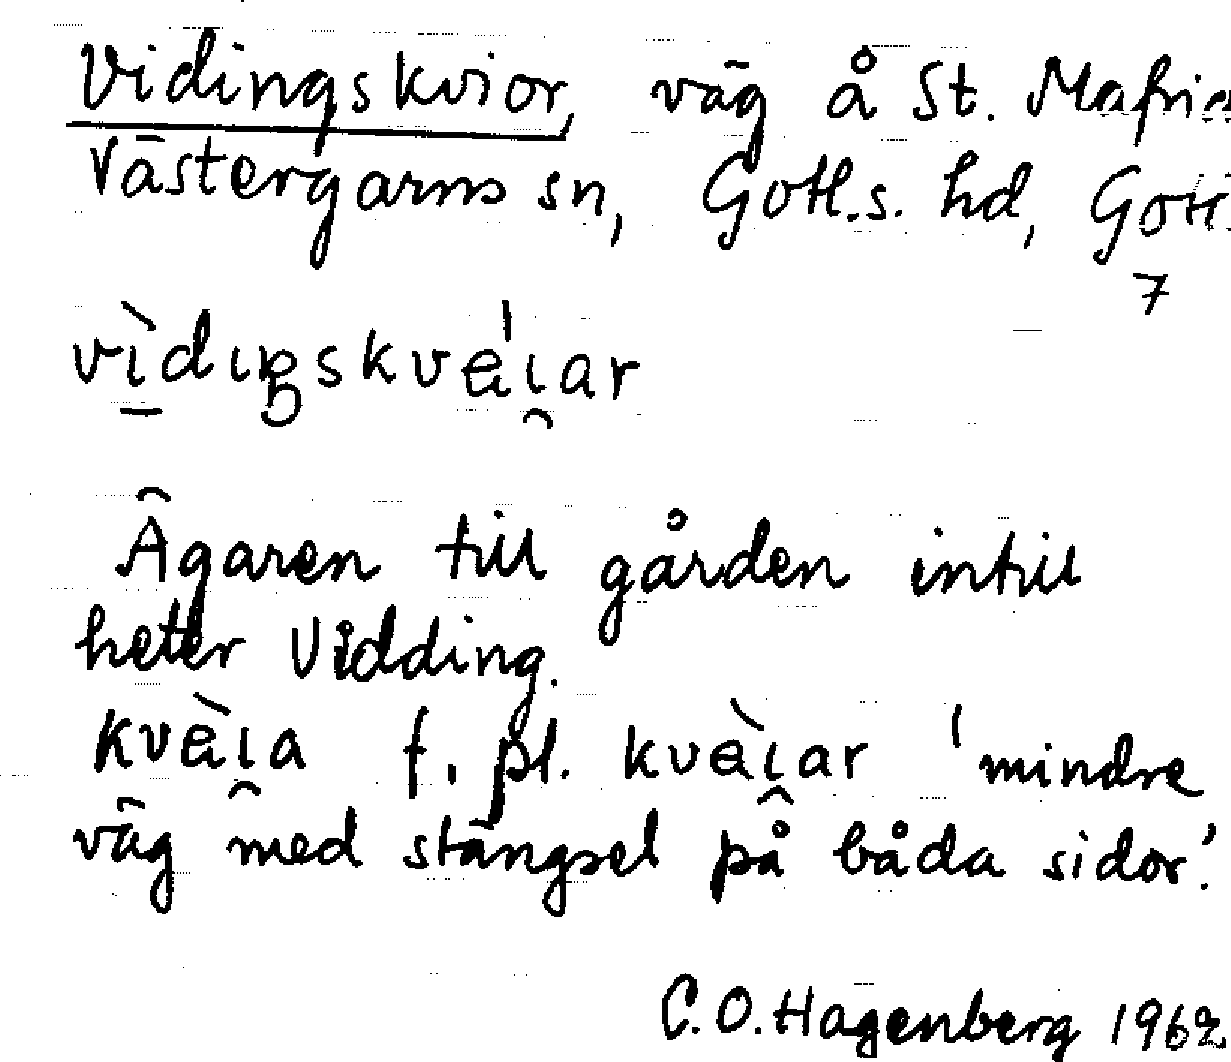 Vidingskvior, väg å St. Mafrids
Västergarns sn, Gotl.s. hd, Gotl.
7
vìdıŋskvèı̯ar
Ägaren till gården intill
heter Vidding.
kvèı̯a f. pl. kvèı̯ar 'mindre
väg med stängsel på båda sidor.'
C.O. Hagenberg 1962